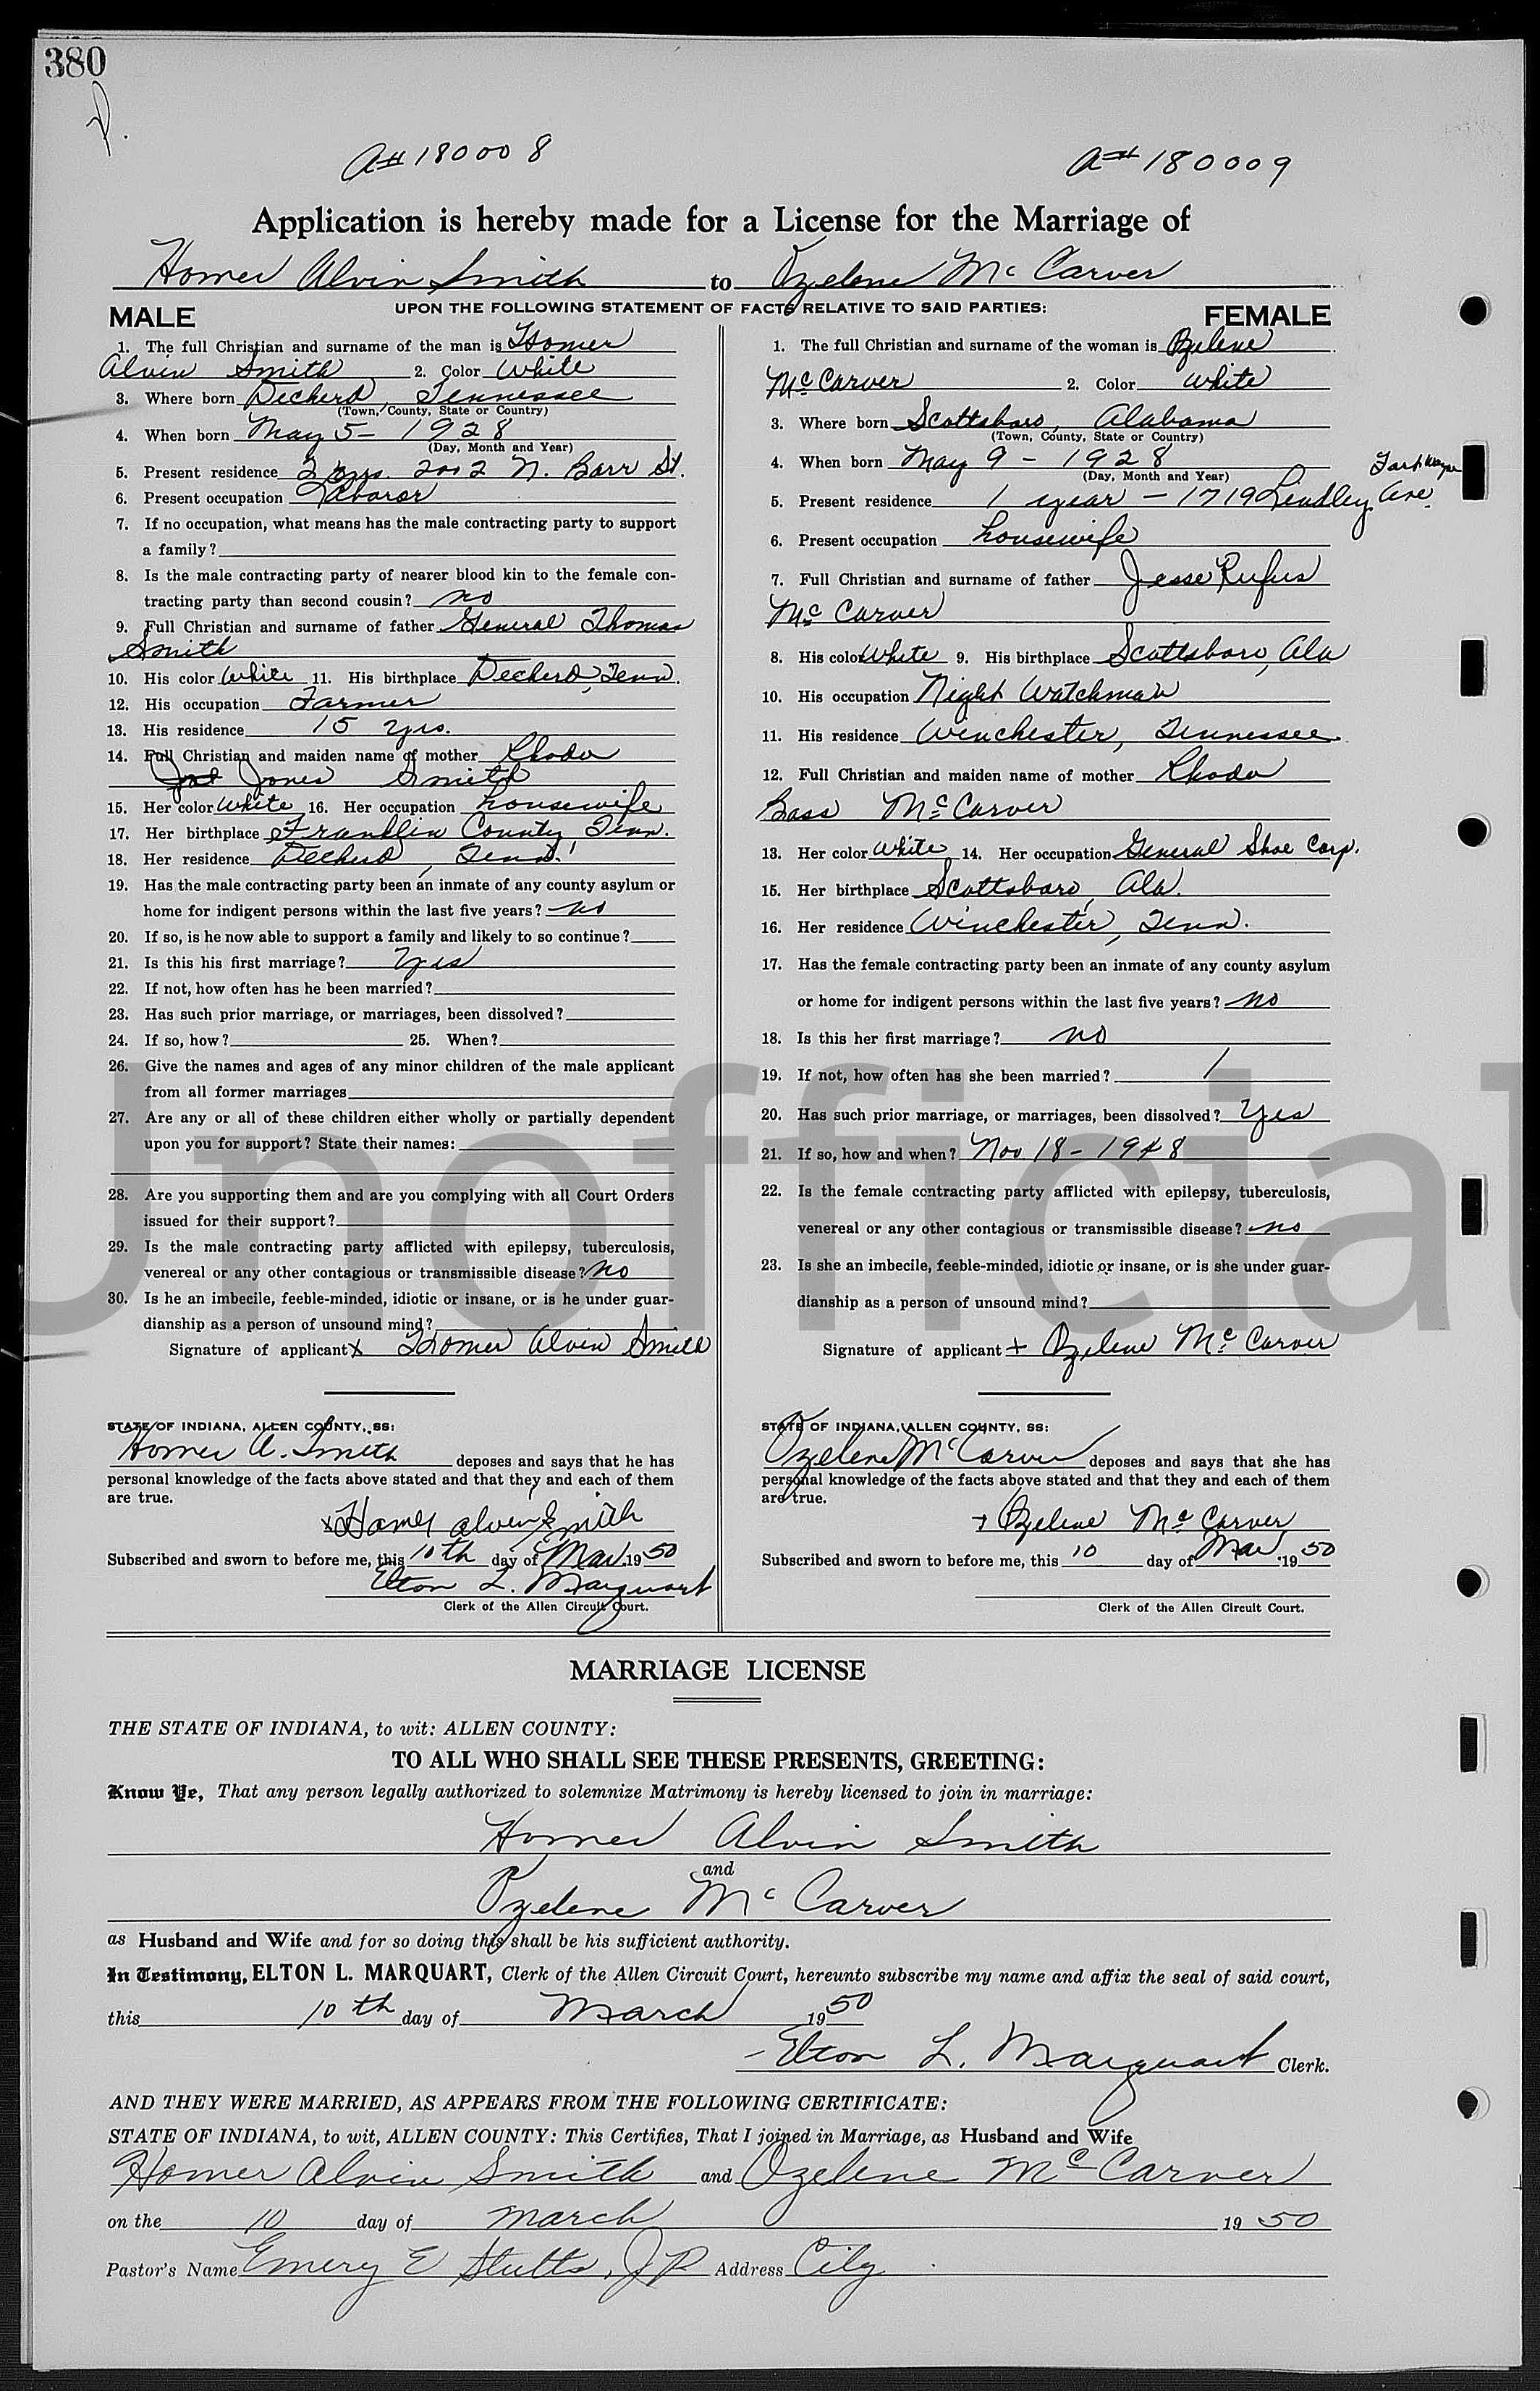 380
A# 180008
A# 180009
Application is hereby made for a License for the Marriage of
Homer Alvin Smith to Ozelene Mc Carver
UPON THE FOLLOWING STATEMENT OF FACTS RELATIVE TO SAID PARTIES:
MALE
1. The full Christian and surname of the man is Homer
Alvin Smith 2. Color White
3. Where born Decherd, Tennessee
(Town, County, State or Country)
4. When born May 5 - 1928
(Day, Month and Year)
5. Present residence 2 yrs. 2002 N. Barr St.
6. Present occupation Laborer
7. If no occupation, what means has the male contracting party to support
a family?
8. Is the male contracting party of nearer blood kin to the female con-
tracting party than second cousin? no
9. Full Christian and surname of father General Thomas
Smith
10. His color White 11. His birthplace Decherd, Tenn.
12. His occupation Farmer
13. His residence 15 yrs.
14. Full Christian and maiden name of mother Rhoda
Jones Smith
15. Her color White 16. Her occupation housewife
17. Her birthplace Franklin County, Tenn.
18. Her residence Decherd, Tenn.
19. Has the male contracting party been an inmate of any county asylum or
home for indigent persons within the last five years? no
20. If so, is he now able to support a family and likely to so continue?
21. Is this his first marriage? Yes
22. If not, how often has he been married?
23. Has such prior marriage, or marriages, been dissolved?
24. If so, how? 25. When?
26. Give the names and ages of any minor children of the male applicant
from all former marriages
27. Are any or all of these children either wholly or partially dependent
upon you for support? State their names:
28. Are you supporting them and are you complying with all Court Orders
issued for their support?
29. Is the male contracting party afflicted with epilepsy, tuberculosis,
venereal or any other contagious or transmissible disease? No
30. Is he an imbecile, feeble-minded, idiotic or insane, or is he under guar-
dianship as a person of unsound mind?
Signature of applicant x Homer Alvin Smith
STATE OF INDIANA, ALLEN COUNTY, SS:
Homer A. Smith deposes and says that he has
personal knowledge of the facts above stated and that they and each of them
are true.
x Homer Alven Smith
Subscribed and sworn to before me, this 10th day of Mar. 1950
Elton L. Marquart
Clerk of the Allen Circuit Court.
FEMALE
1. The full Christian and surname of the woman is Ozelene
McCarver 2. Color White
3. Where born Scottsboro, Alabama
(Town, County, State or Country)
4. When born May 9 - 1928
(Day, Month and Year)
5. Present residence 1 year - 1719 Lindley Ave. Fort Wayne
6. Present occupation housewife
7. Full Christian and surname of father Jesse Rufus
McCarver
8. His color White 9. His birthplace Scottsboro, Ala
10. His occupation Night Watchman
11. His residence Winchester, Tennessee.
12. Full Christian and maiden name of mother Rhoda
Bass McCarver
13. Her color White 14. Her occupation General Shoe Corp.
15. Her birthplace Scottsboro, Ala.
16. Her residence Winchester, Tenn.
17. Has the female contracting party been an inmate of any county asylum
or home for indigent persons within the last five years? no
18. Is this her first marriage? no
19. If not, how often has she been married? 1
20. Has such prior marriage, or marriages, been dissolved? Yes
21. If so, how and when? Nov 18 - 1948
22. Is the female contracting party afflicted with epilepsy, tuberculosis,
venereal or any other contagious or transmissible disease? no
23. Is she an imbecile, feeble-minded, idiotic or insane, or is she under guar-
dianship as a person of unsound mind?
Signature of applicant + Ozelene McCarver
STATE OF INDIANA, ALLEN COUNTY, SS:
Ozelene McCarver deposes and says that she has
personal knowledge of the facts above stated and that they and each of them
are true.
+ Ozelene McCarver
Subscribed and sworn to before me, this 10 day of Mar 1950
Clerk of the Allen Circuit Court.
Unofficial
MARRIAGE LICENSE
THE STATE OF INDIANA, to wit: ALLEN COUNTY:
TO ALL WHO SHALL SEE THESE PRESENTS, GREETING:
Know Ye, That any person legally authorized to solemnize Matrimony is hereby licensed to join in marriage:
Homer Alvin Smith
and
Ozelene McCarver
as Husband and Wife and for so doing this shall be his sufficient authority.
In Testimony, ELTON L. MARQUART, Clerk of the Allen Circuit Court, hereunto subscribe my name and affix the seal of said court,
this 10th day of March 1950
Elton L. Marquart Clerk.
AND THEY WERE MARRIED, AS APPEARS FROM THE FOLLOWING CERTIFICATE:
STATE OF INDIANA, to wit, ALLEN COUNTY: This Certifies, That I joined in Marriage, as Husband and Wife
Homer Alvin Smith and Ozelene McCarver
on the 10 day of March 1950
Pastor's Name Emery E Stutts, JP Address City